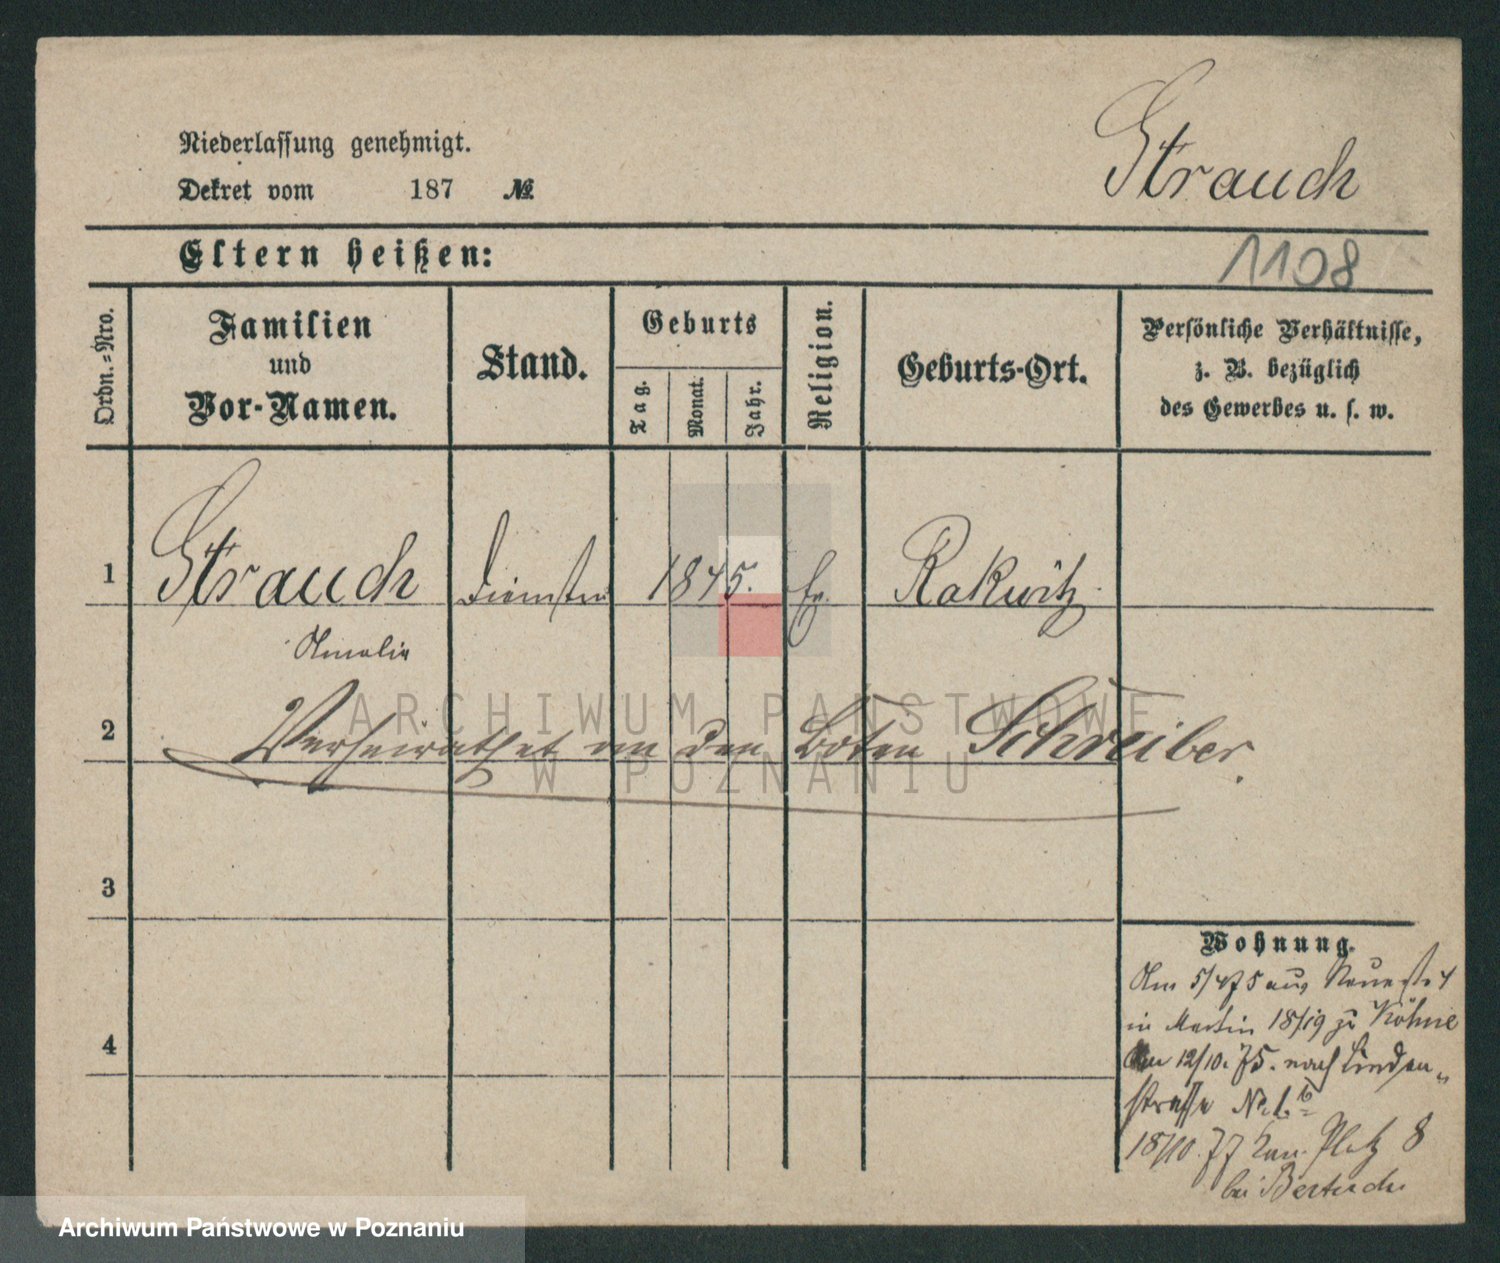 Strauch
Niederlassung genehmigt.
Dekret vom 187 №
Eltern heißen:
1108
Ordn.=Nro.
Familien
und
Vor-Namen.
Stand.
Geburts
Tag.
Monat.
Jahr.
Religion.
Geburts-Ort.
Persönliche Verhältnisse,
z. B. bezüglich
des Gewerbes u. s. w.
1 Strauch 1845. Rakwitz
Amalie
2 Verheirathet an den Boten Schreiber.
3
Wohnung.
Am 5/4 75 aus
in Martin 18/19 zu Köhne
4
Am 12/10. 75. nach Linden„
strasse No. 1.b
18/10. 77 Kan. Platz 8
bei
ARCHIWUM PAŃSTWOWE
W POZNANIU
Archiwum Państwowe w Poznaniu